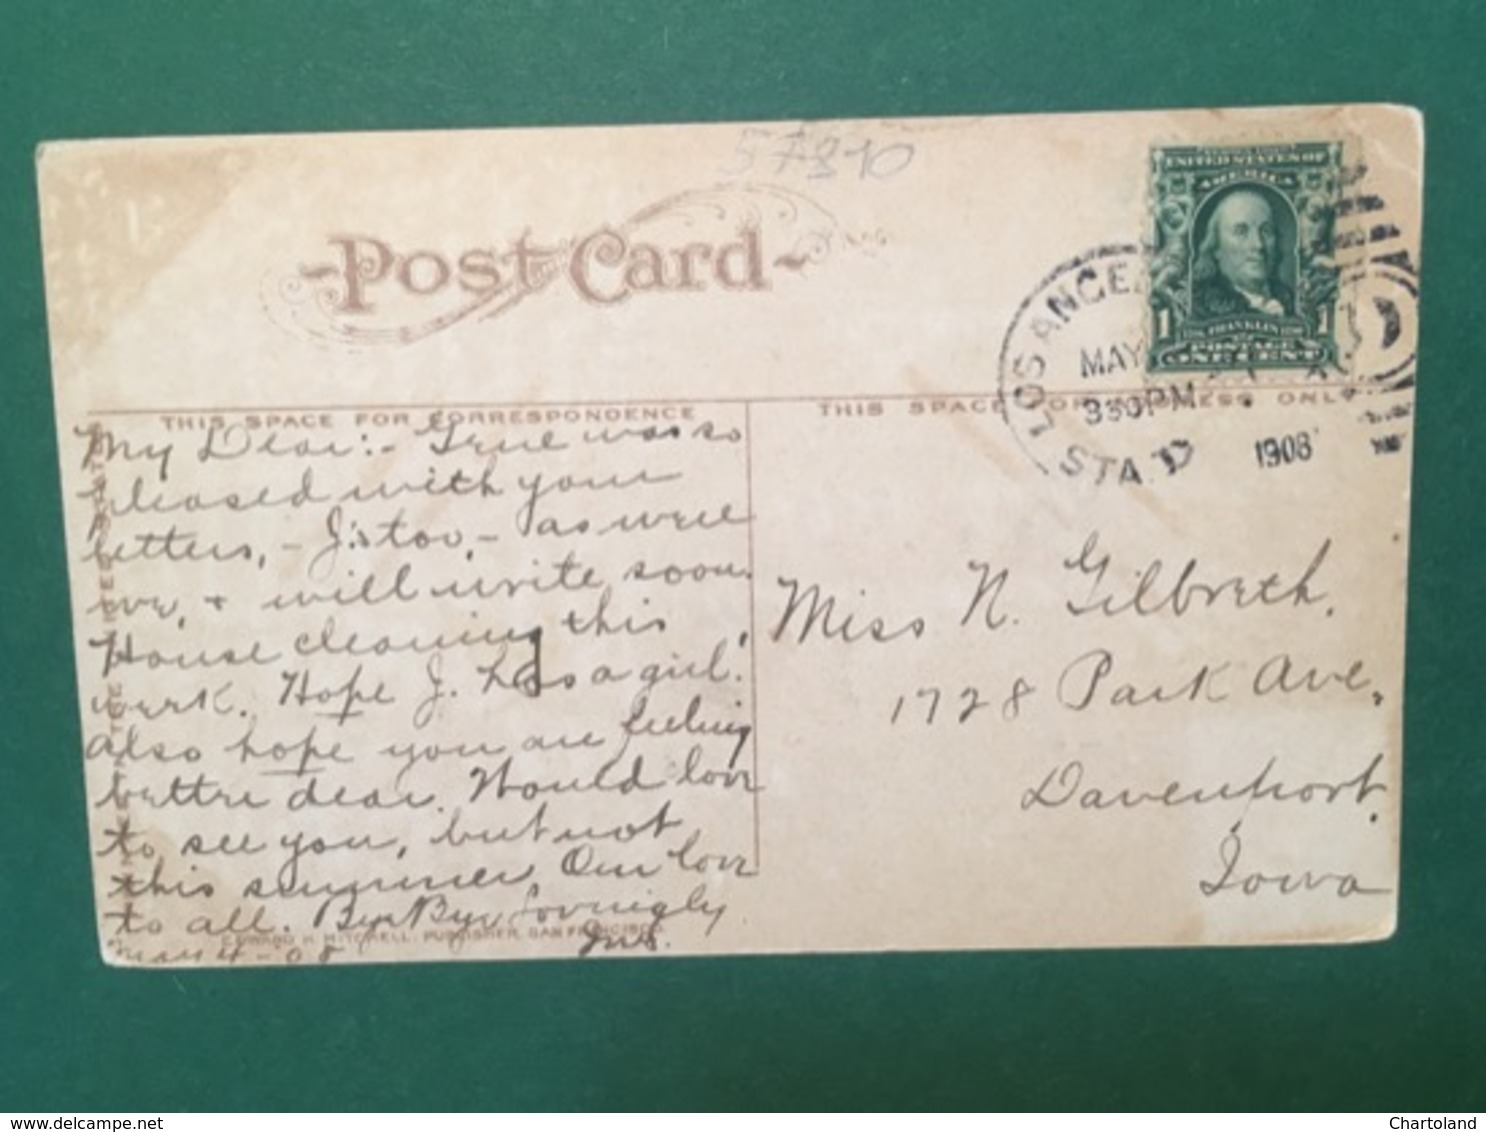 57810
Post Card
UNITED STATES OF
AMERICA
1 FRANKLIN 1
POSTAGE
ONE CENT
LOS ANGE
MAY
330PM
STA.
1908
THIS SPACE FOR CORRESPONDENCE
THIS SPACE FOR ADDRESS ONLY
My Dear:- Irene was so
pleased with your
letters, - J's too, - as were
we, + will write soon.
House cleaning this
week. Hope J. has a girl.
Also hope you are feeling
better dear. Would love
to see you, but not
this summer. Our love
to all. Bye Bye Lovingly
May 4-08
EDWARD H. MITCHELL, PUBLISHER, SAN FRANCISCO
Miss N. Gilbreth.
1728 Park Ave,
Davenport,
Iowa
www.delcampe.net
Chartoland